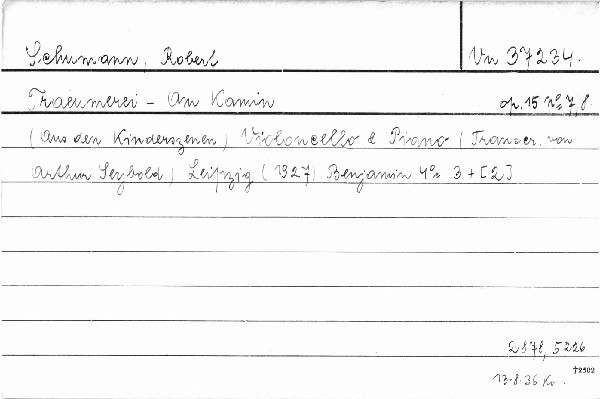 Schumann, Robert Vn 37234.
Traeumerei - An Kamin op. 15 no 7, 8.
(Aus den Kinderszenen) Violoncello & Piano (Transcr. von
Arthur Seybold) Leipzig (1927) Benjamin 4° 3 + [2]
2878, 5226
13.8.36 Ko.
†2502